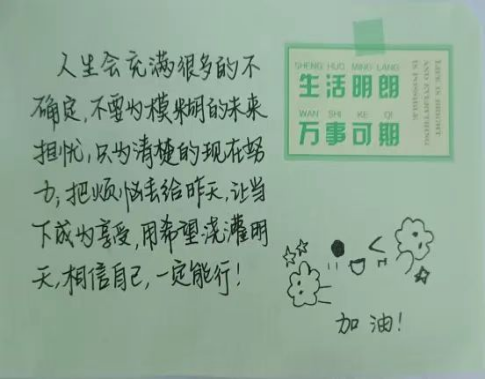 人生会充满很多的不
确定,不要为模糊的未来
担忧,只为清楚的现在努
力,把烦恼丢给昨天,让当
下成为享受,用希望浇灌明
天,相信自己,一定能行!
SHENG HUO MING LANG
生活明朗
WAN SHI KE QI
万事可期
LIFE IS BRIGHT
AND EVERYTHING
IS POSSIBLE
加油!